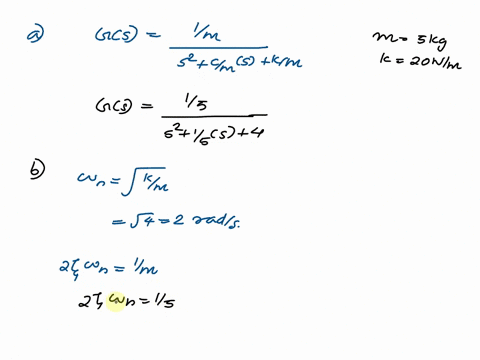 a) G(s) = 1/m / s² + c/m (s) + k/m
m = 5kg
k = 20N/m
G(s) = 1/5 / s² + 1/5 (s) + 4
b) ωn = √k/m
= √4 = 2 rad/s.
2ζ ωn = 1/m
2ζ ωn = 1/5